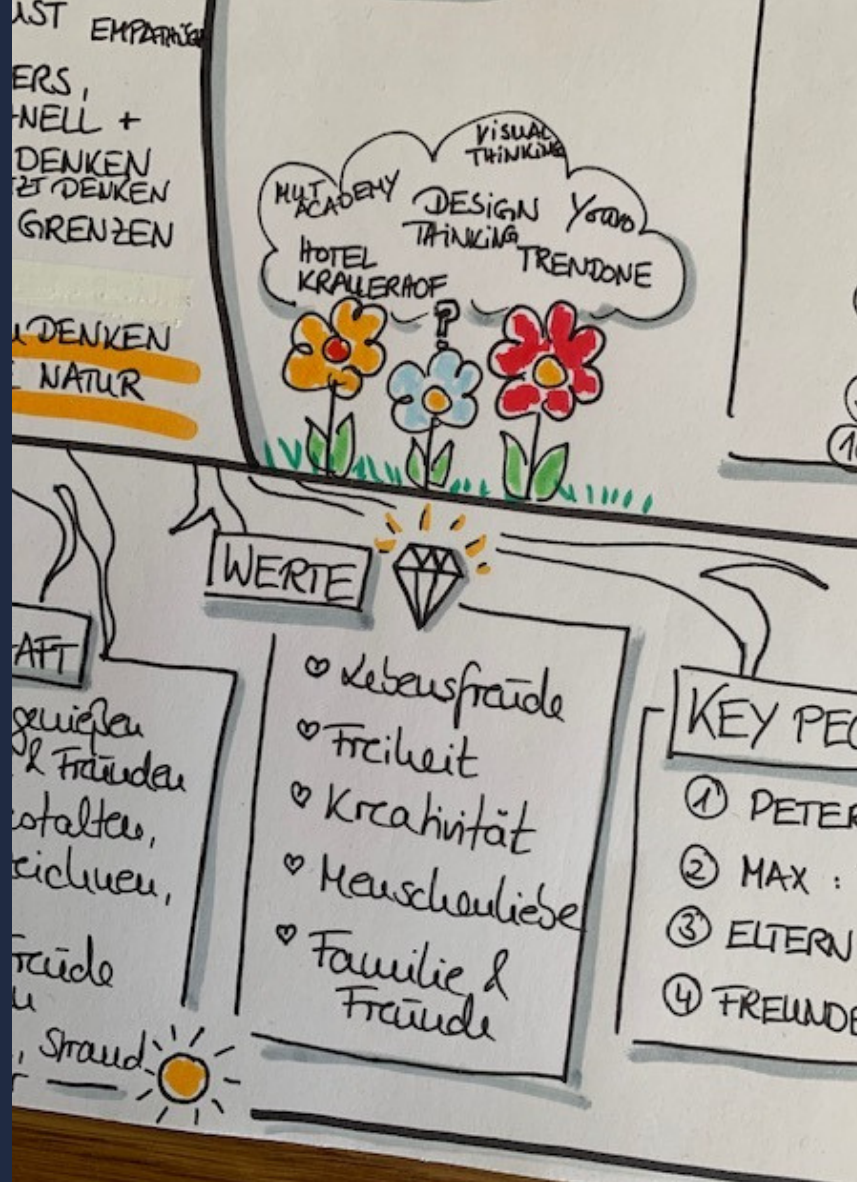 EMPATHISCH
ERS,
NELL +
DENKEN
DENKEN
GRENZEN
DENKEN
NATUR
VISUAL
THINKING
MUT
ACADEMY
DESIGN
THINKING
HOTEL
KRALLERHOF
TRENDONE
?
WERTE
♡ Lebensfreude
♡ Freiheit
♡ Kreativität
♡ Menschenliebe
♡ Familie &
Freunde
AFT
genießen
& Freunden
estalten,
eichnen,
reude
, Strand
KEY PEO
① PETER
② MAX :
③ ELTERN
④ FREUNDE